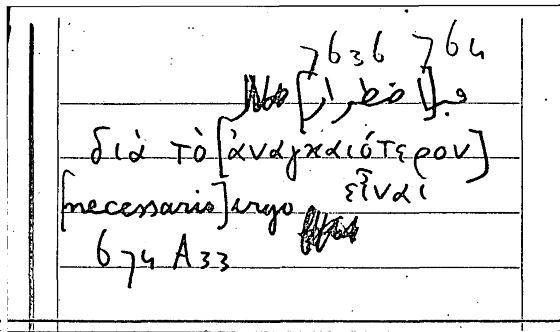 7636 764
فب[اضطرار]
διὰ τὸ [ἀναγκαιότερον]
εἶναι
[necessario] ergo
674 A33